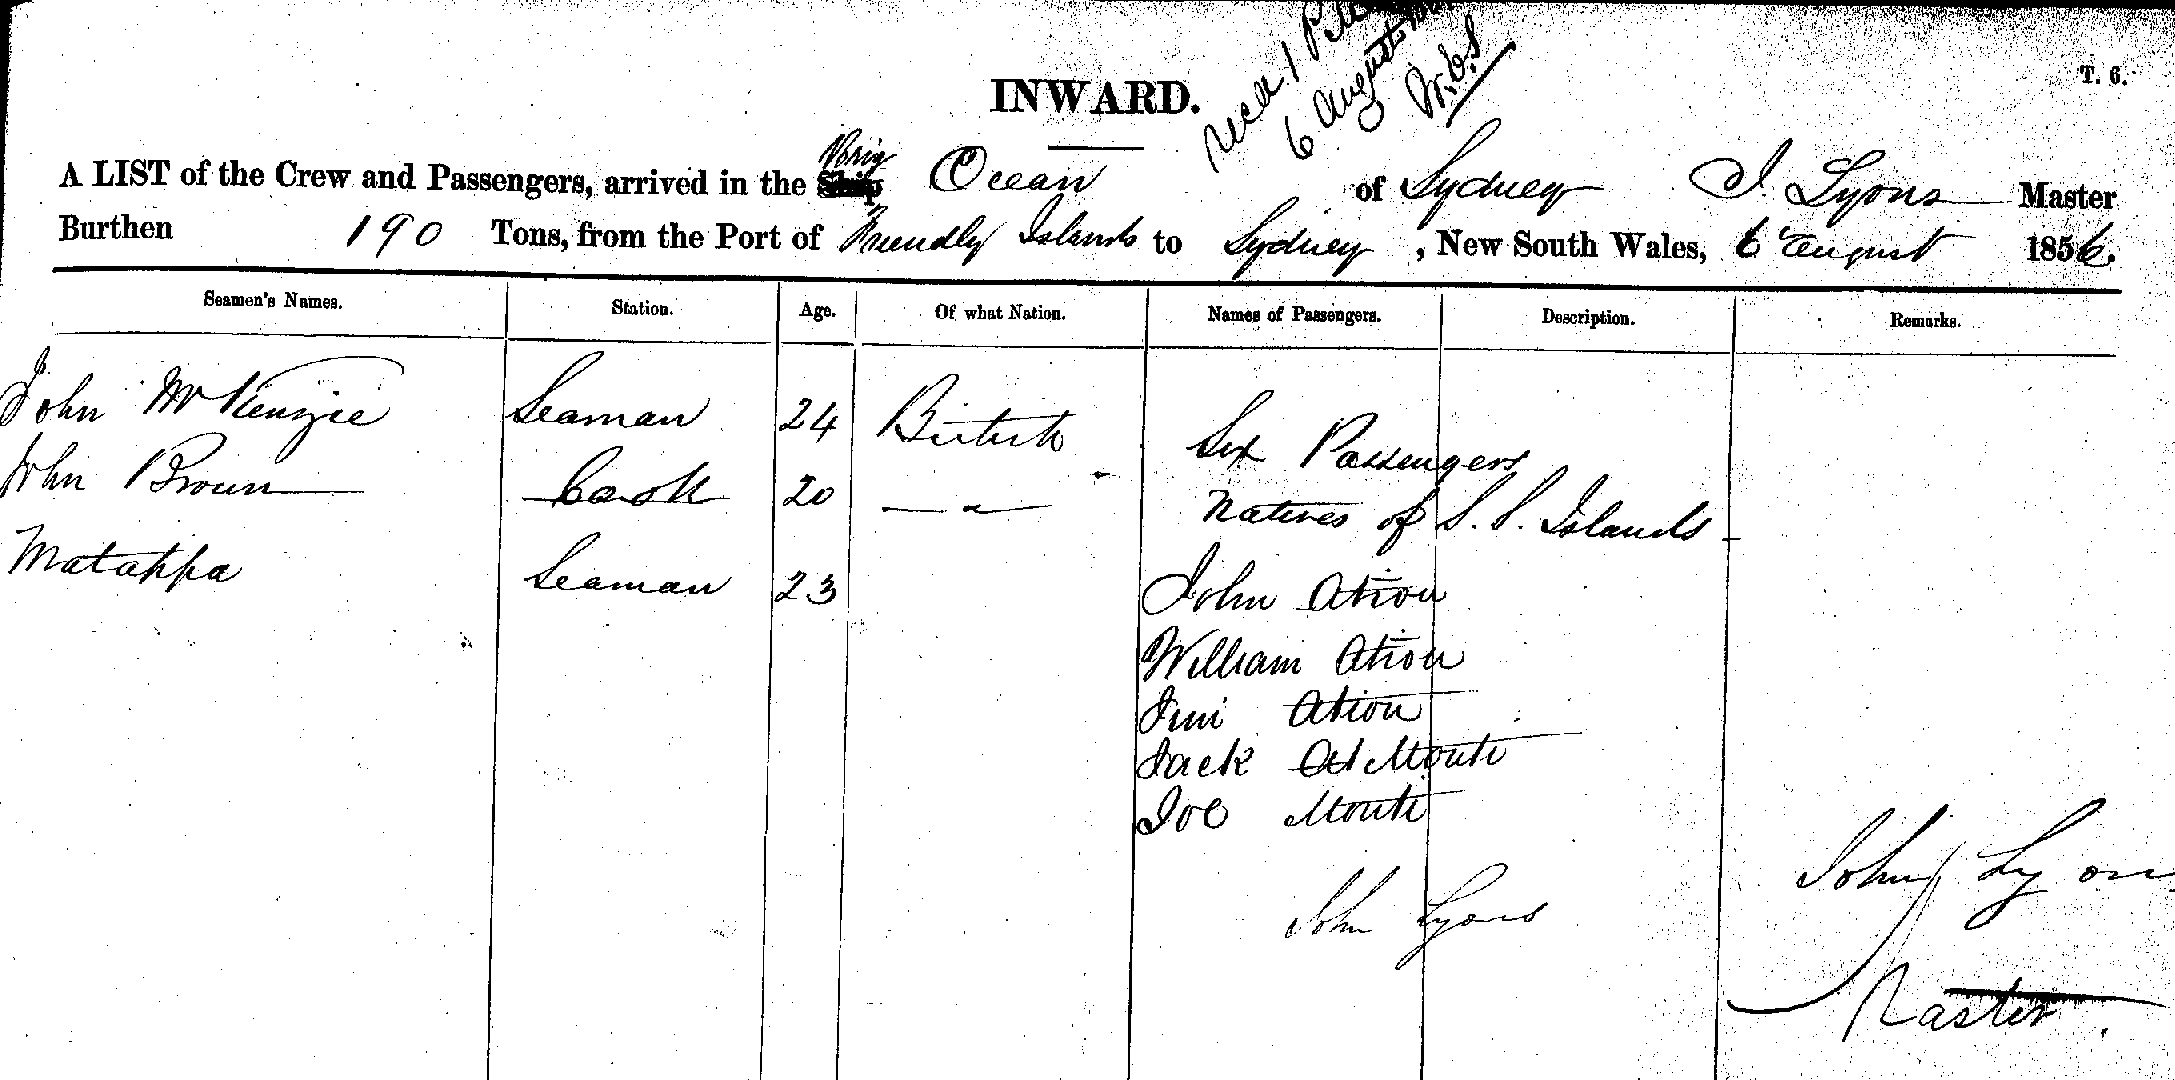 INWARD.
T. 6.
6 August
Brig
A LIST of the Crew and Passengers, arrived in the Ship Ocean of Sydney J. Lyons Master
Burthen 190 Tons, from the Port of Friendly Islands to Sydney, New South Wales, 6 August 1856.
Seamen's Names. Station. Age. Of what Nation. Names of Passengers. Description. Remarks.
John McKenzie Seaman 24 British Six Passengers
John Brown Cook 20 — " — Natives of S. S. Islands -
Matakka Seaman 23 John Ation
William Ation
Jim Ation
Jack At Monti
Joe Monti
John Lyons John Lyons
Master.